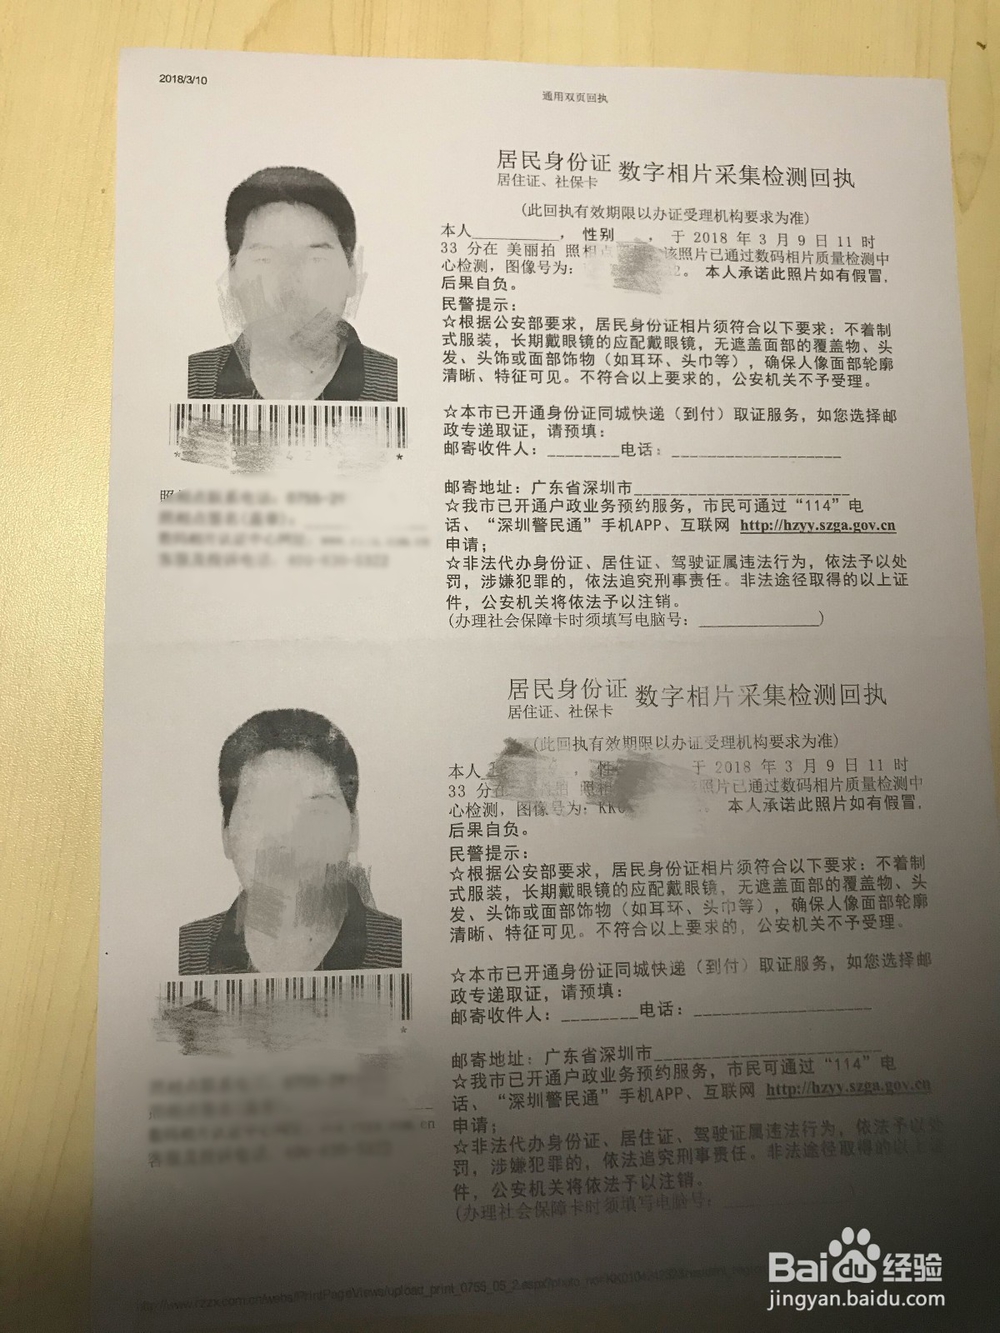 2018/3/10
通用双页回执
居民身份证 数字相片采集检测回执
居住证、社保卡
(此回执有效期限以办证受理机构要求为准)
本人__________，性别___，于 2018 年 3 月 9 日 11 时
33 分在 美丽拍 照相点 该照片已通过数码相片质量检测中
心检测，图像号为： 2。 本人承诺此照片如有假冒，
后果自负。
民警提示：
☆根据公安部要求，居民身份证相片须符合以下要求：不着制
式服装，长期戴眼镜的应配戴眼镜，无遮盖面部的覆盖物、头
发、头饰或面部饰物（如耳环、头巾等），确保人像面部轮廓
清晰、特征可见。不符合以上要求的，公安机关不予受理。
☆本市已开通身份证同城快递（到付）取证服务，如您选择邮
政专递取证，请预填：
邮寄收件人：________电话：___________________
邮寄地址：广东省深圳市________________________
☆我市已开通户政业务预约服务，市民可通过“114”电
话、“深圳警民通”手机APP、互联网 http://hzyy.szga.gov.cn
申请；
☆非法代办身份证、居住证、驾驶证属违法行为，依法予以处
罚，涉嫌犯罪的，依法追究刑事责任。非法途径取得的以上证
件，公安机关将依法予以注销。
(办理社会保障卡时须填写电脑号：______________)
居民身份证 数字相片采集检测回执
居住证、社保卡
(此回执有效期限以办证受理机构要求为准)
本人 ，性 于 2018 年 3 月 9 日 11 时
33 分在 拍 照相 照片已通过数码相片质量检测中
心检测，图像号为：KK 。 本人承诺此照片如有假冒，
后果自负。
民警提示：
☆根据公安部要求，居民身份证相片须符合以下要求：不着制
式服装，长期戴眼镜的应配戴眼镜，无遮盖面部的覆盖物、头
发、头饰或面部饰物（如耳环、头巾等），确保人像面部轮廓
清晰、特征可见。不符合以上要求的，公安机关不予受理。
☆本市已开通身份证同城快递（到付）取证服务，如您选择邮
政专递取证，请预填：
邮寄收件人：________电话：___________________
邮寄地址：广东省深圳市________________________
☆我市已开通户政业务预约服务，市民可通过“114”电
话、“深圳警民通”手机APP、互联网 http://hzyy.szga.gov.cn
申请；
☆非法代办身份证、居住证、驾驶证属违法行为，依法予以处
罚，涉嫌犯罪的，依法追究刑事责任。非法途径取得的以上
件，公安机关将依法予以注销。
(办理社会保障卡时须填写电脑号：
Baidu经验
jingyan.baidu.com